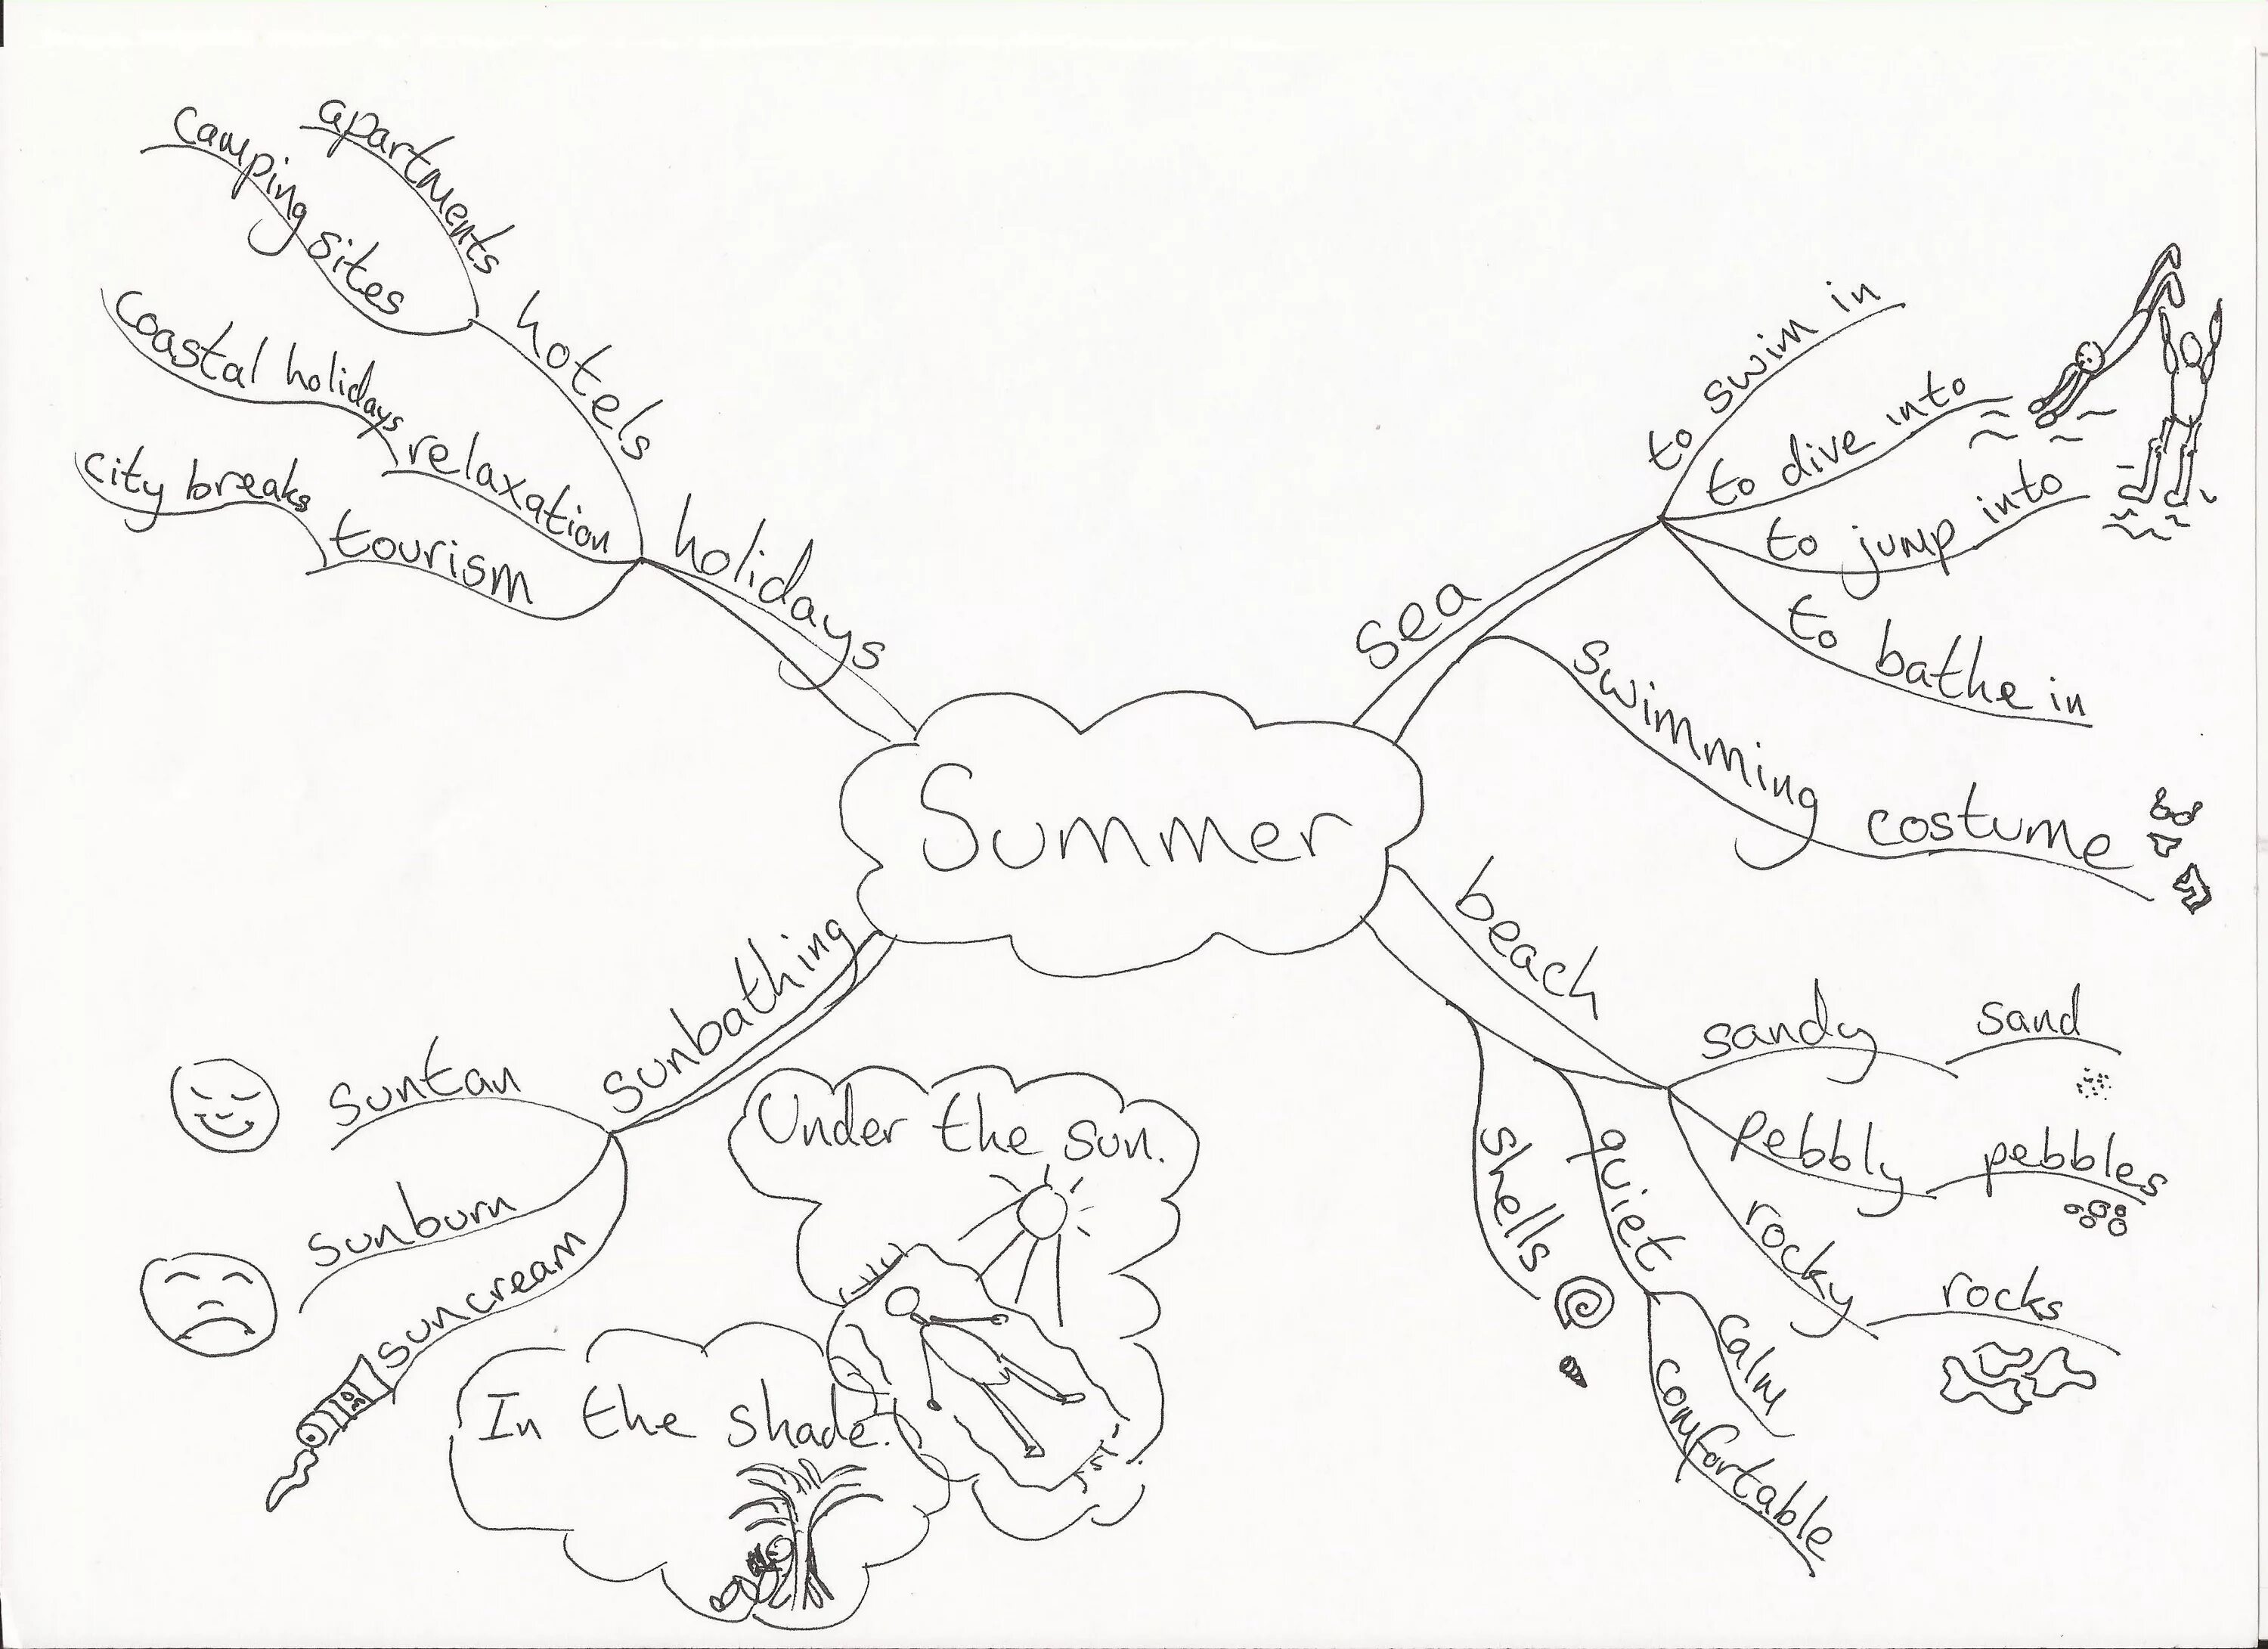 Summer
holidays
hotels
apartments
camping sites
relaxation
coastal holidays
tourism
city breaks
sea
to swim in
to dive into
to jump into
to bathe in
swimming costume
beach
sandy
sand
pebbly
pebbles
rocky
rocks
quiet
calm
comfortable
shells
sunbathing
suntan
sunburn
suncream
Under the sun.
In the shade.